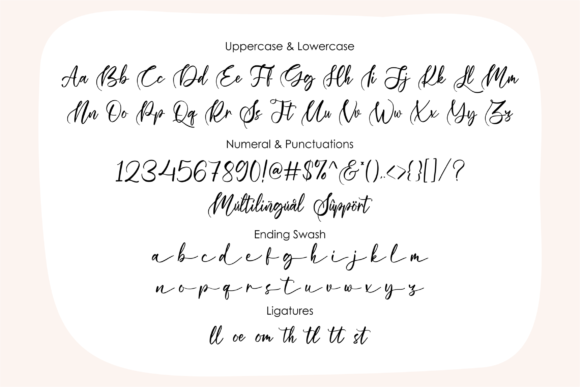 Uppercase & Lowercase
Aa Bb Cc Dd Ee Ff Gg Hh Ii Jj Kk Ll Mm
Nn Oo Pp Qq Rr Ss Tt Uu Vv Ww Xx Yy Zz
Numeral & Punctuations
1234567890!@#$%^&*()..<>{}[]/?
Múltilingúâl Sûppört
Ending Swash
a b c d e f g h i j k l m
n o p q r s t u v w x y z
Ligatures
ll oe om th tl tt st